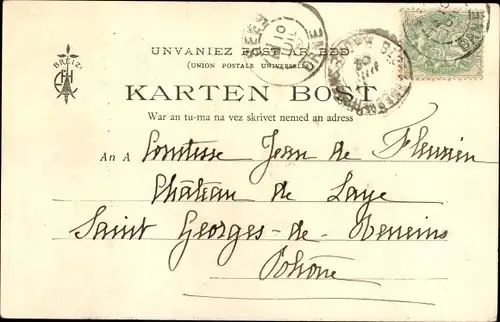 BREIZ
UNVANIEZ POST AR BED
(UNION POSTALE UNIVERSELLE)
KARTEN BOST
War an tu-ma na vez skrivet nemed an adress
An A Comtesse Jean de Fleurieu
Château de Laye
Saint Georges-de-Reneins
Rhône